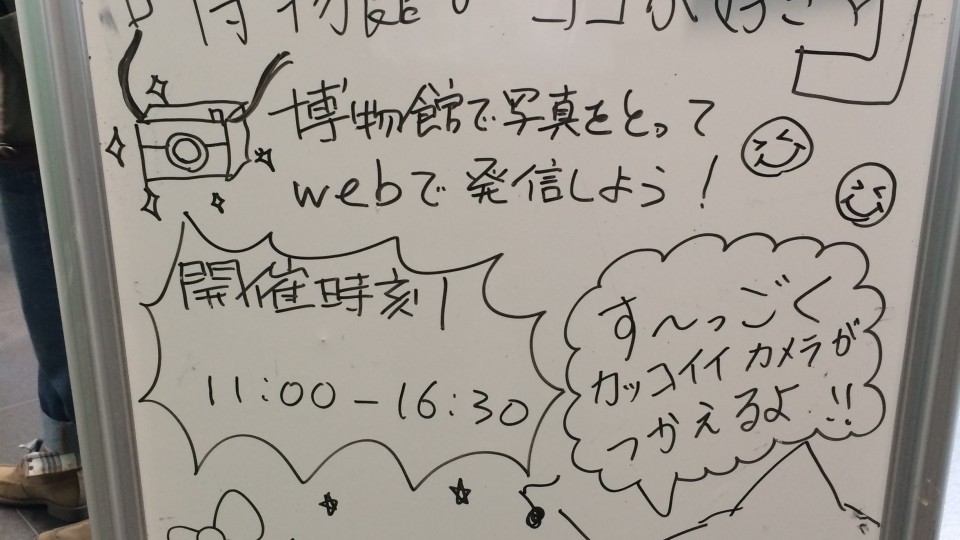 博物館で写真をとって
webで発信しよう!
開催時刻
11:00-16:30
す〜っごく
カッコイイカメラが
つかえるよ!!